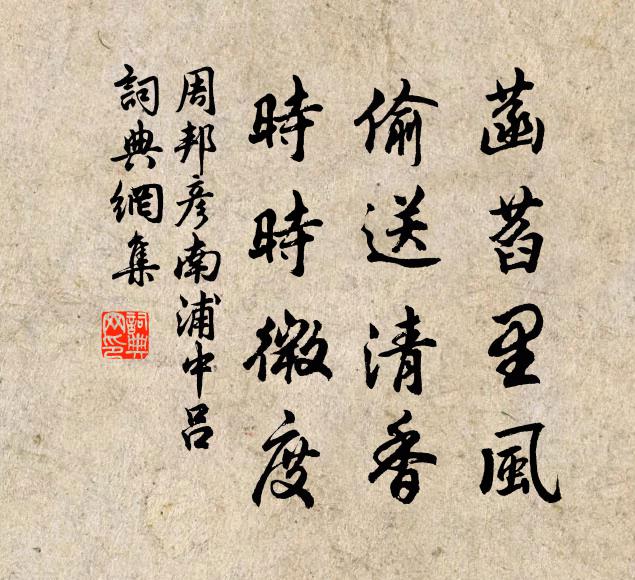 菡萏里風
偷送清香
時時微度
周邦彦南浦中呂
詞典網集
詞典網印